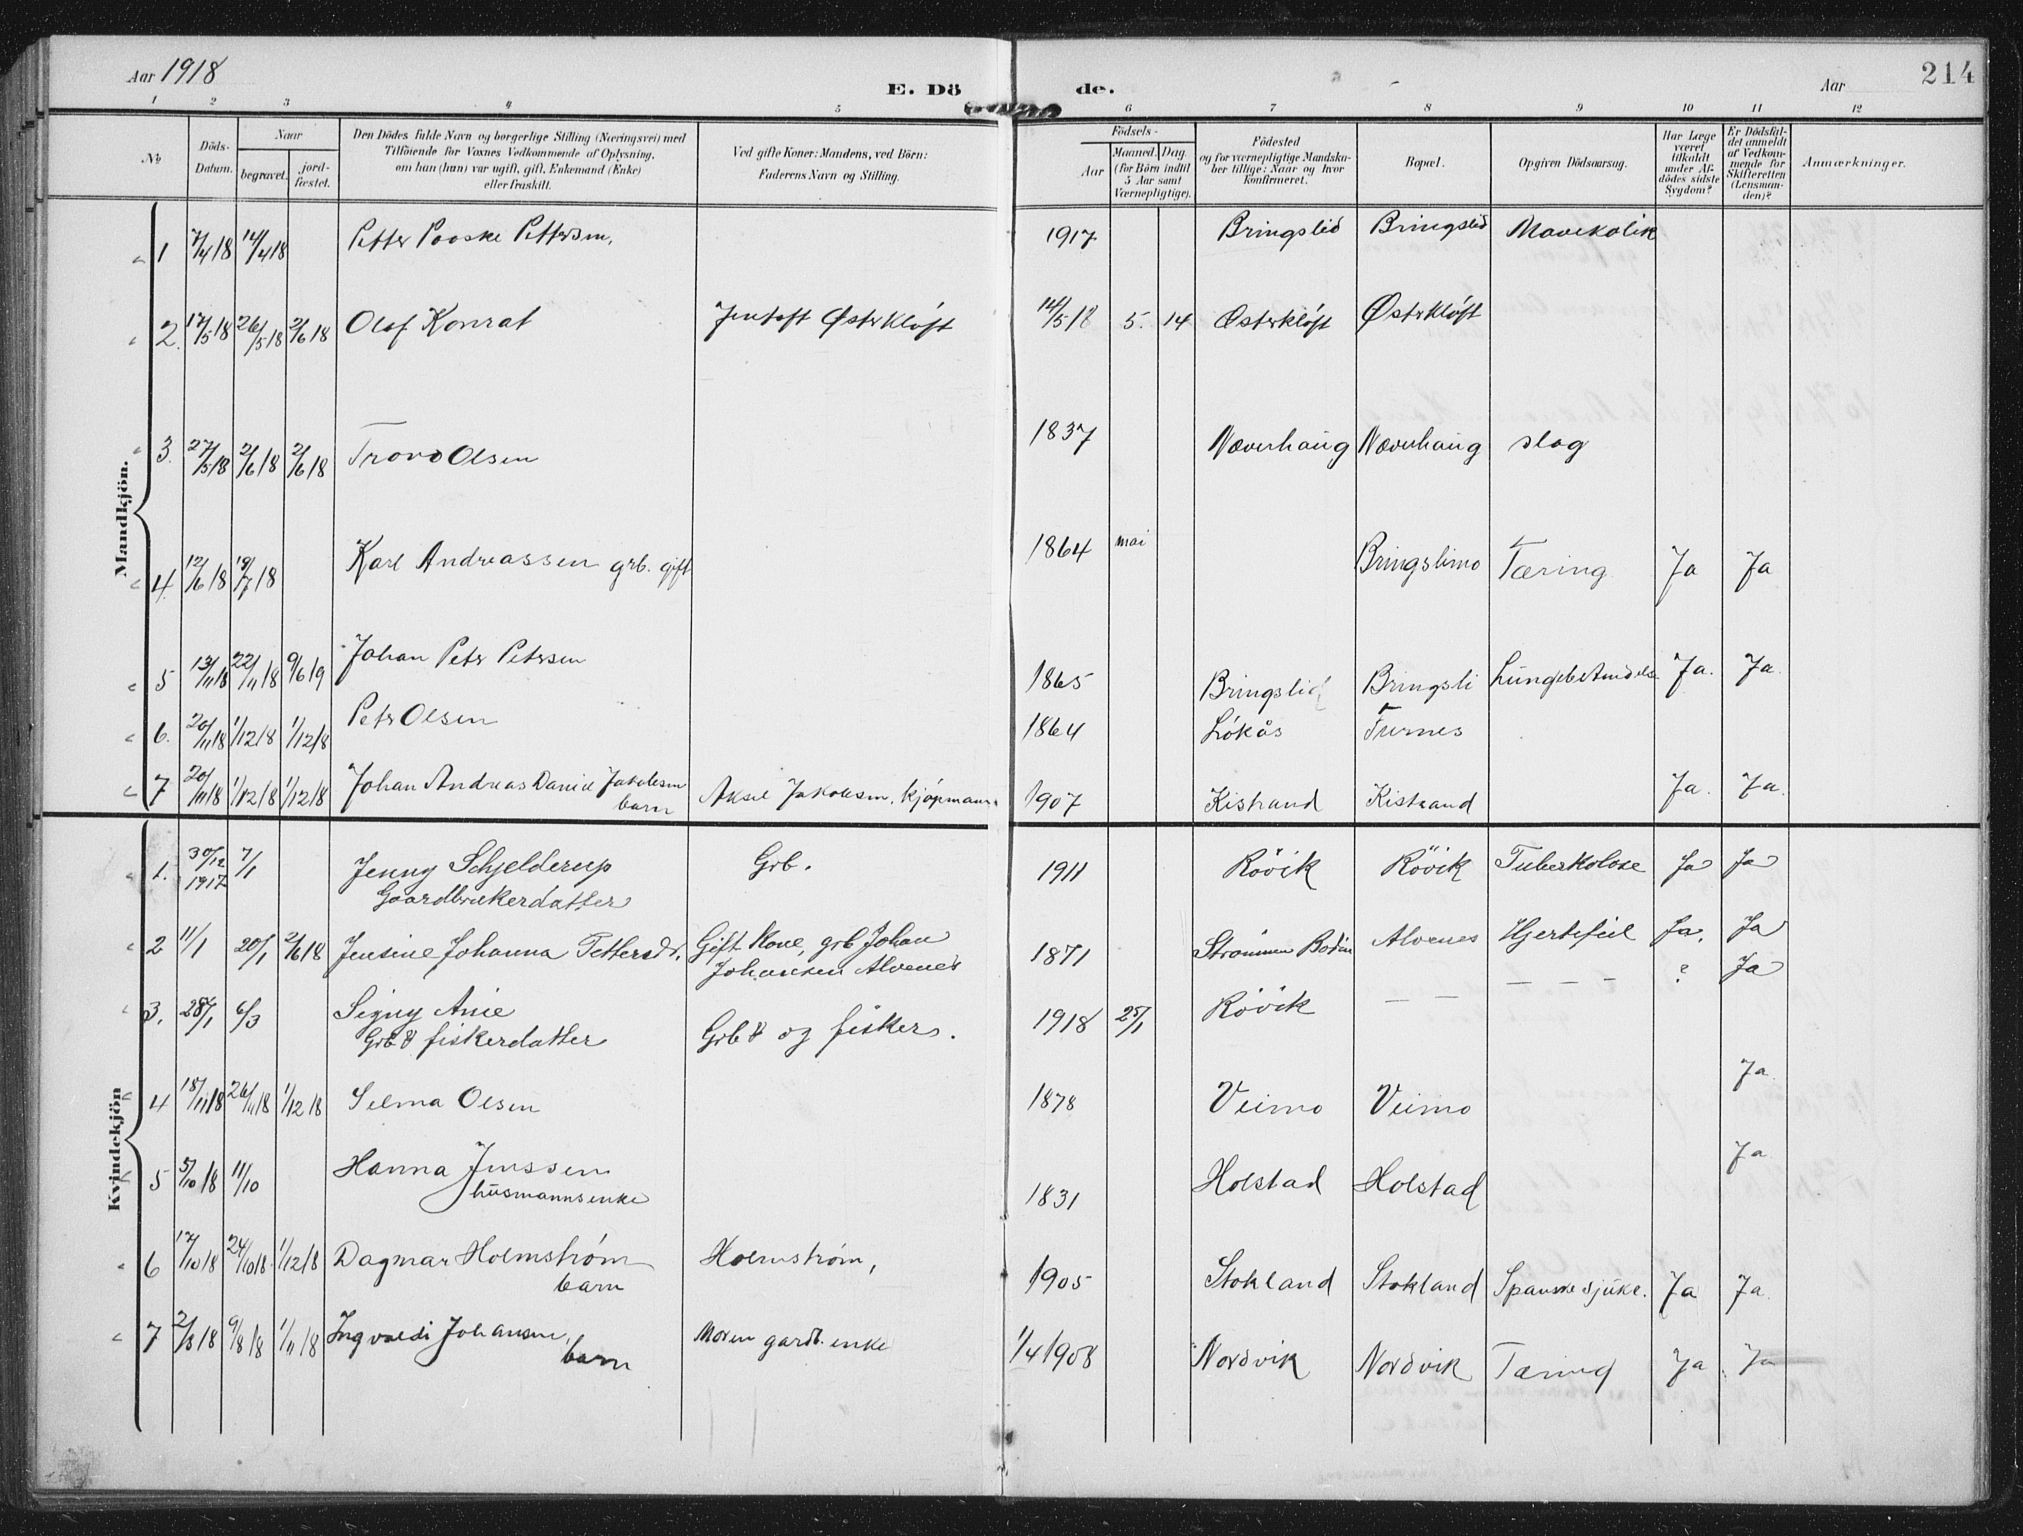 Aar 1918
E. Dö de.
Aar
214
1 2 3 4 5 6 7 8 9 10 11 12
No.
Döds-Datum.
Naar
begravet.
jord-fæstet.
Den Dödes fulde Navn og borgerlige Stilling (Næringsvei) med
Tilföiende for Voxnes Vedkommende af Oplysning,
om han (hun) var ugift, gift, Enkemand (Enke)
eller fraskilt.
Ved gifte Koner: Mandens, ved Börn:
Faderens Navn og Stilling.
Födsels-
Aar
Maaned. Dag.
(for Börn indtil
5 Aar samt
Værnepligtige).
Födested
og for værnepligtige Mandska-
ber tillige: Naar og hvor
Konfirmeret.
Bopæl.
Opgiven Dödsaarsag.
Har Læge
været
tilkaldt
under Af-
dödes sidste
Sygdom?
Er Dödsfal-
det anmeldt
af Vedkom-
mende for
Skifteretten
(Lensman-
den)?
Anmærkninger.
Mandkjön.
1 7/4 18 14/4 18 Petter Pooske Pettersen, 1917 Bringslid Bringslid Mavekolik
2. 17/5 18 26/5 18 2/6 18 Olaf Konrat Jentoft Østerkløft 14/5 18 5. 14 Østerkløft Østerkløft
3. 27/5 18 2/6 18 2/6 18 Trond Olsen 1837 Næverhaug Næverhaug slag
4. 12/6 18 19/7 18 Karl Andreassen grb. gift 1864 mai Bringslimo Tæring Ja Ja
5 13/11 18 22/11 18 9/6 19 Johan Peter Petersen 1865 Bringslid Bringsli Lungebetændelse Ja. Ja
6. 20/11 18 1/12 18 1/12 18 Peter Olsen 1864 Løkås Furnes
7 20/11 18 1/12 18 1/12 18 Johan Andreas Daniel Jakobsen
barn Aksel Jakobsen, kjøpmann 1907 Kistrand Kistrand Ja. Ja.
Kvindekjön
1. 30/12 1917 7/1 Jenny Schjelderup
Gaardbrukerdatter Grb. 1911 Röøik Röøik Tuberkolose Ja Ja
2 11/1 20/1 2/6 18 Jensine Johanna Pettersdr. Gift Kone, grb Johan
Johansen Alvenes 1871 Strømmen Bodin Alvenes Hjertefeil Ja. Ja
3. 28/1 6/3 Signy Anie
Grb & fiskerdatter Grb & og fiskers. 1918 25/1 Röøik — — — — — ? Ja
4 18/11 18 26/11 18 1/12 18 Selma Olsen 1878 Veimo Veimo Ja
5 5/10 18 11/10 Hanna Jenssen
husmannsenke 1831 Holstad Holstad Ja
6 17/10 18 24/10 18 1/12 18 Dagmar Holmstrøm
barn Holmstrøm, 1905 Stokland Stokland Spanske sjuke. Ja Ja
7 2/8 18 9/8 18 1/11 18 Ingvaldi Johansen,
barn Moren gardb. enke 1/4 1908 Nordvik Nordvik Tæring Ja Ja